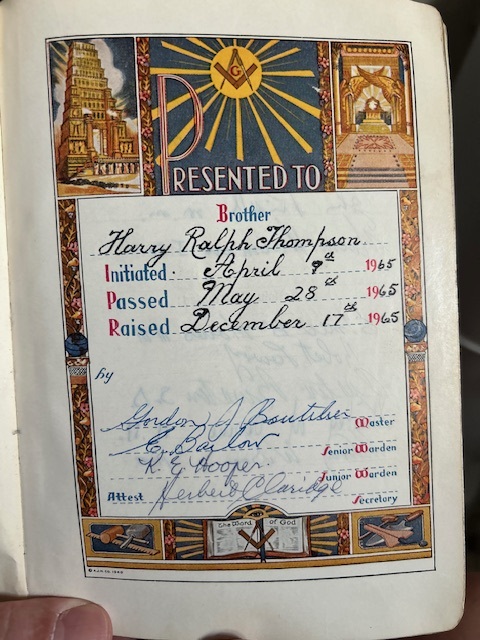 G
PRESENTED TO
Brother
Harry Ralph Thompson
Initiated. April 9th 1965
Passed May 28th 1965
Raised December 17th 1965
by
Gordon J. Boutilier Master
E. Barlow Senior Warden
K. E. Hooper. Junior Warden
Attest Herbert Claridge Secretary
The Word of God